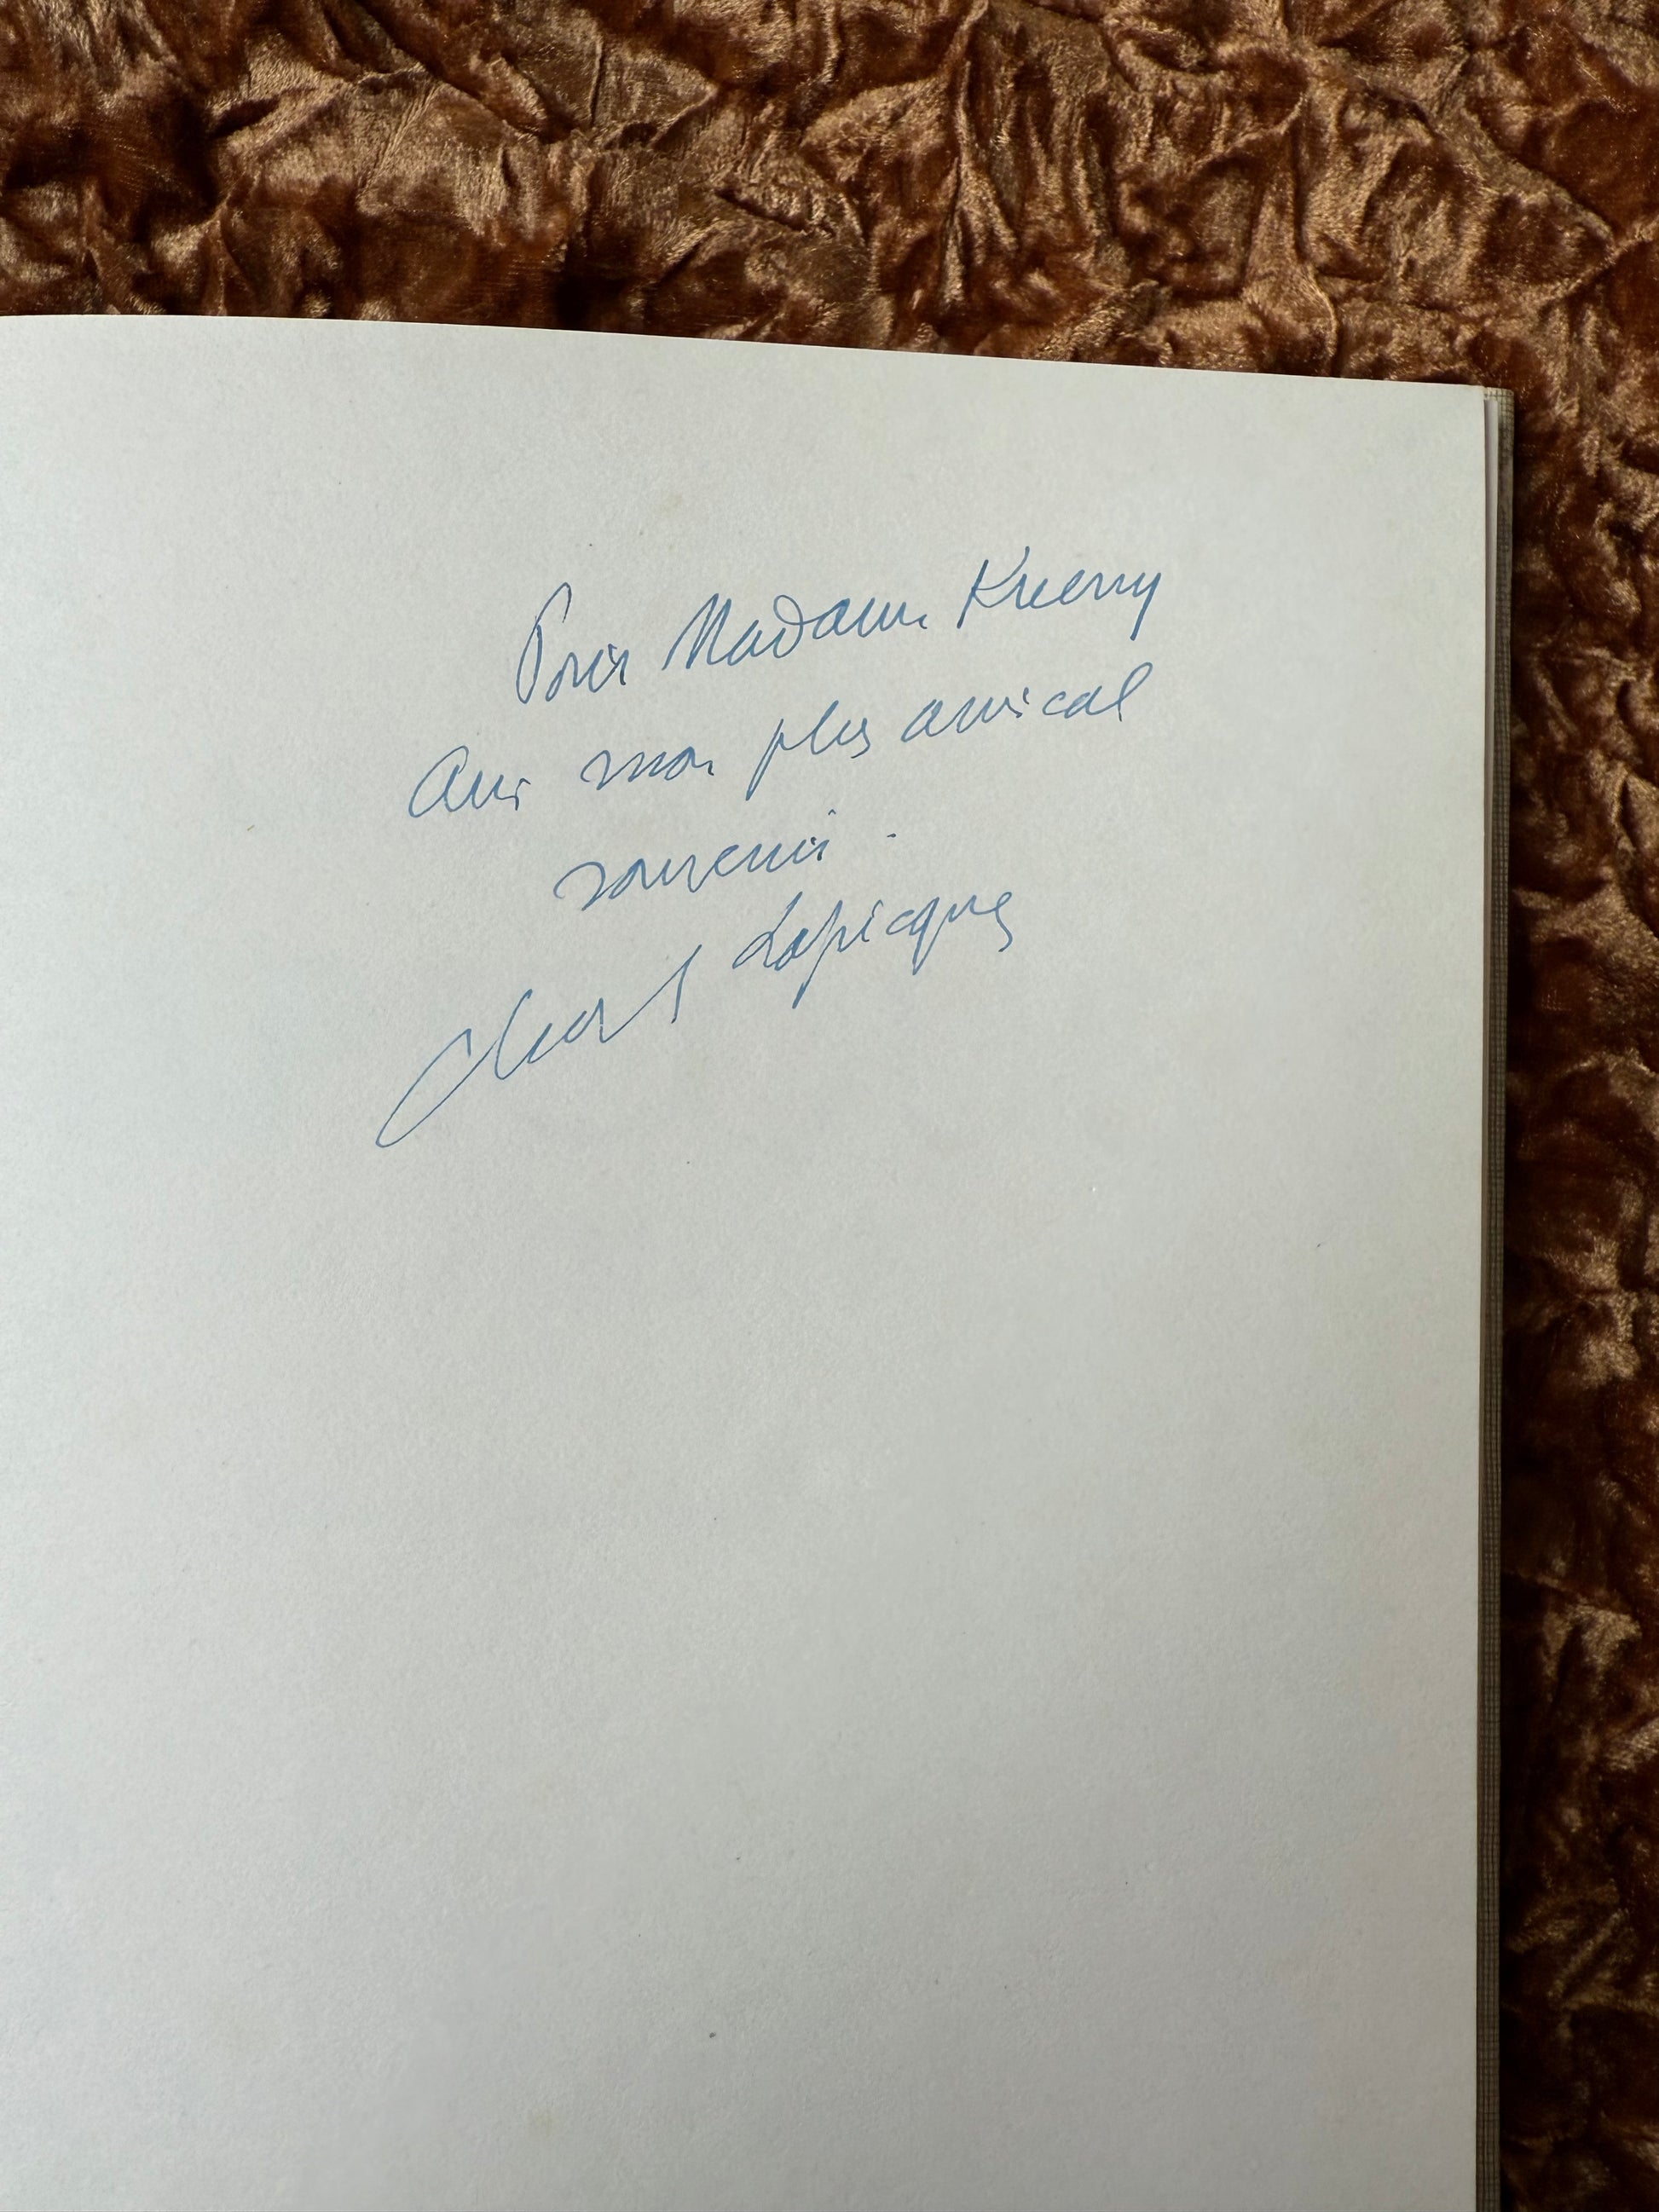 Pour Madame
avec mon plus amical
souvenir.
Charles Lapicque